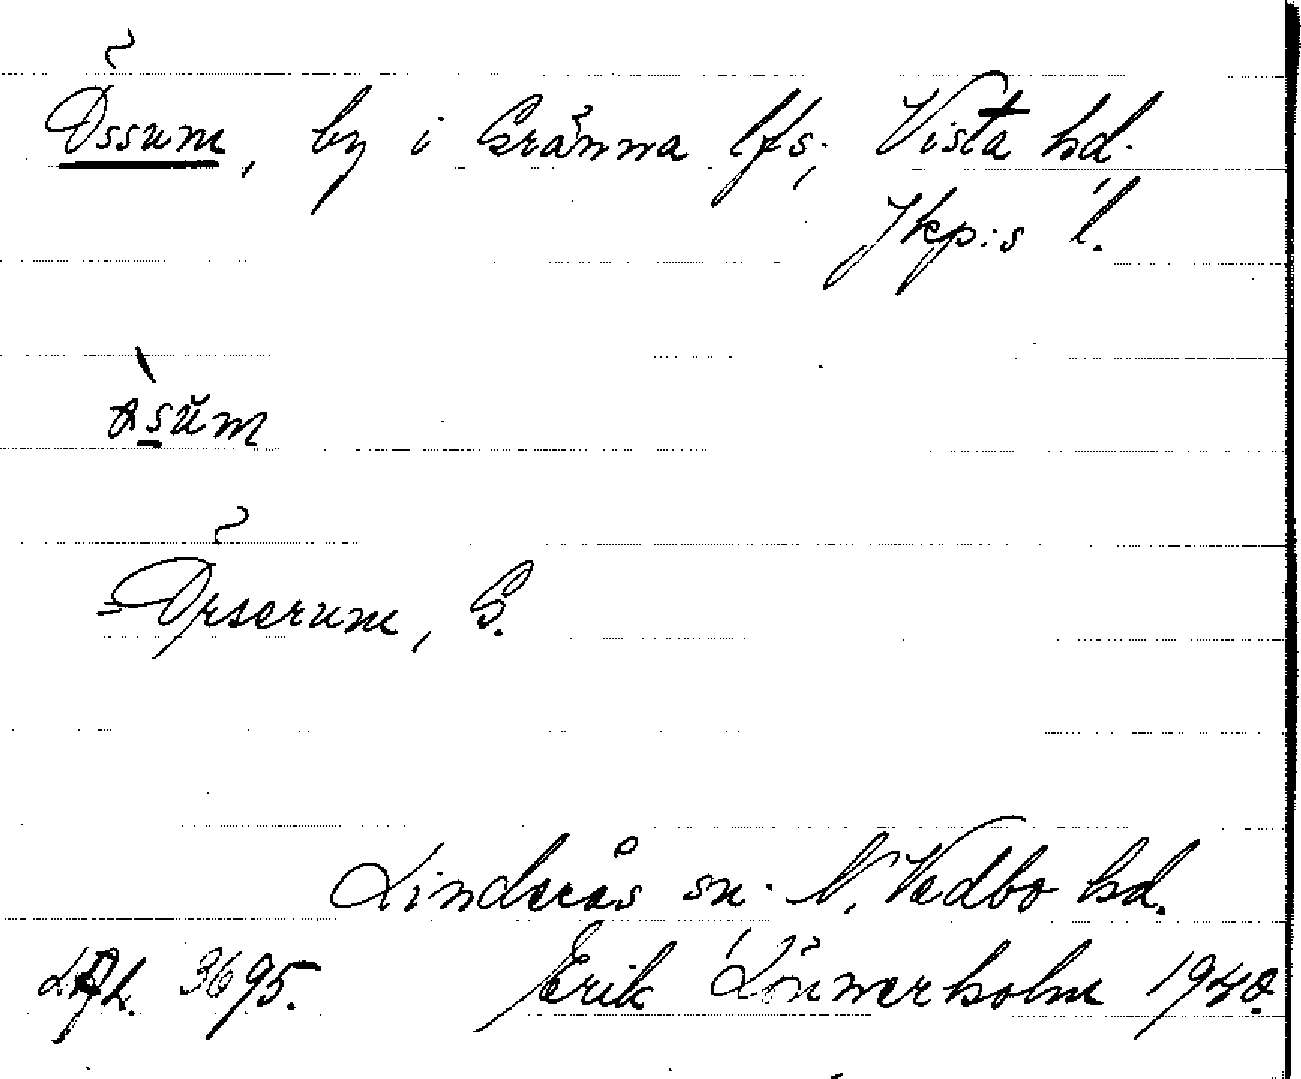 Össum, by i Gränna lfs, Vista hd.
Jkp:s l.
= Örserum, G.
Linderås sn. N. Vedbo hd.
3695. Erik Lönnerholm 1940.